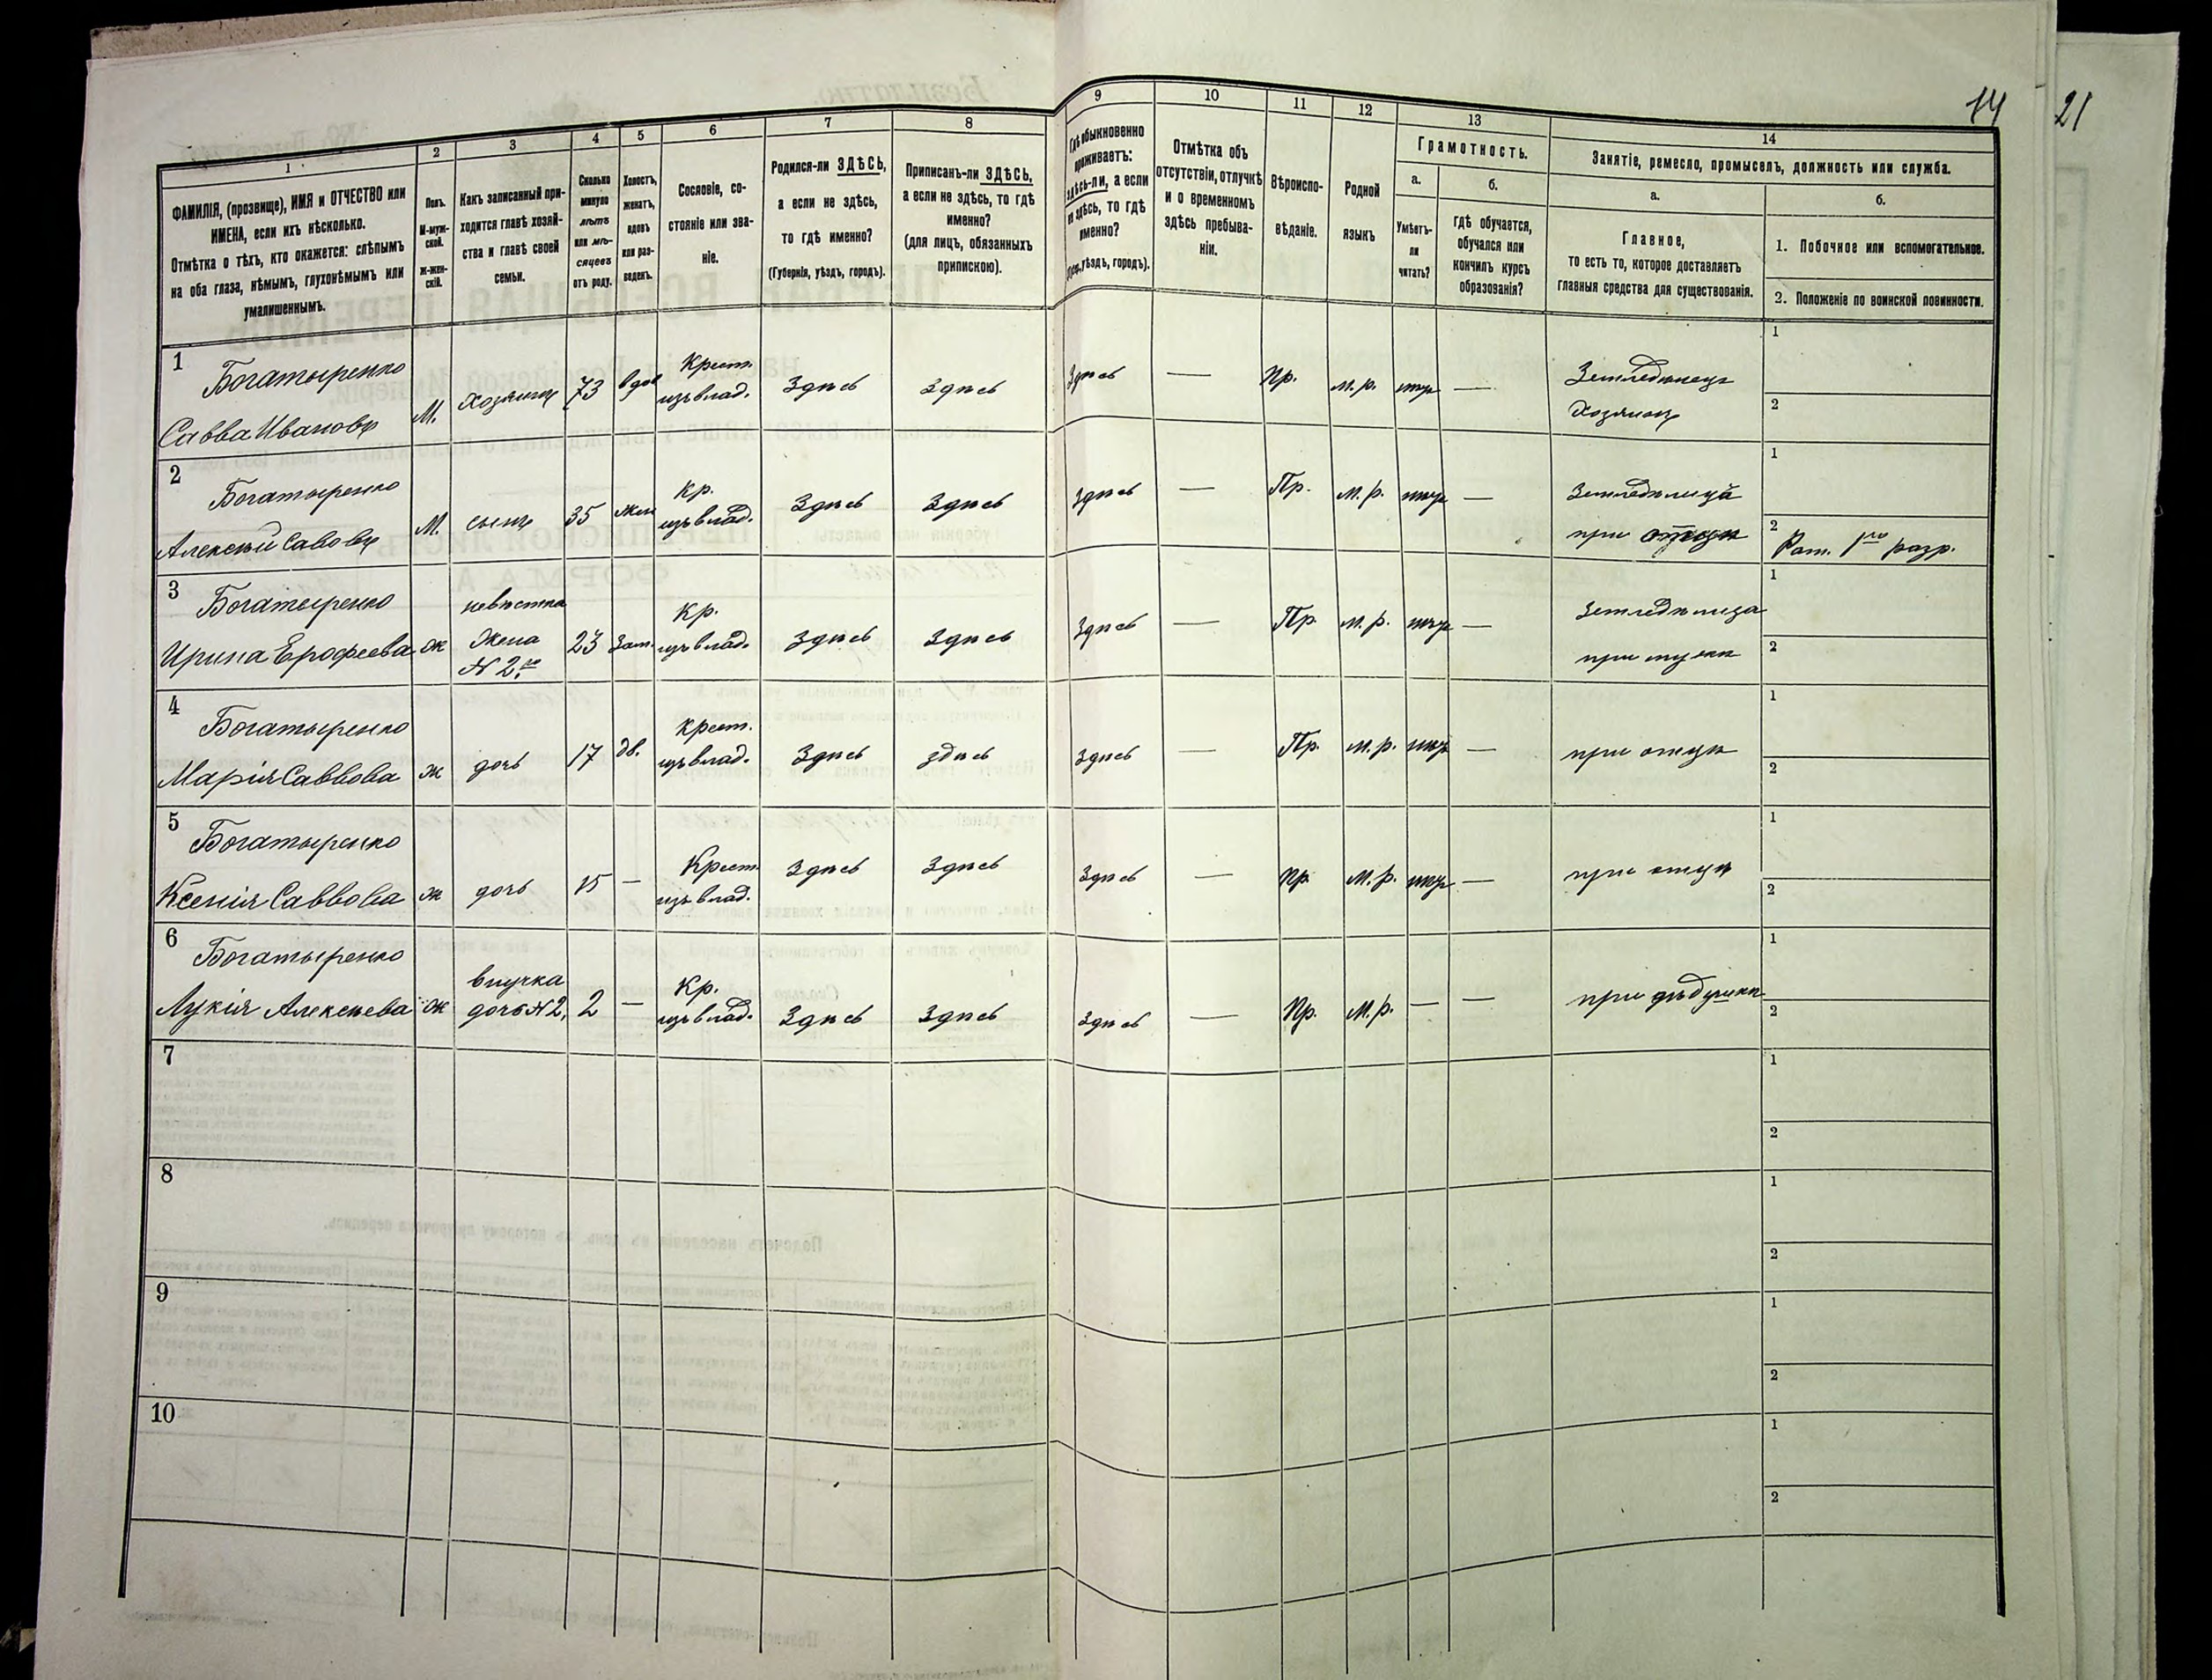 14
21
1
2
3
4
5
6
7
8
9
10
11
12
13
14
ФАМИЛІЯ, (прозвище), ИМЯ и ОТЧЕСТВО или
ИМЕНА, если ихъ нѣсколько.
Отмѣтка о тѣхъ, кто окажется: слѣпымъ
на оба глаза, нѣмымъ, глухонѣмымъ или
умалишеннымъ.
Полъ.
М-муж-
ской.
Ж-жен-
скій.
Какъ записанный при-
ходится главѣ хозяй-
ства и главѣ своей
семьи.
Сколько
минуло
лѣтъ
или мѣ-
сяцевъ
отъ роду.
Холостъ,
женатъ,
вдовъ
или раз-
веденъ.
Сословіе, со-
стояніе или зва-
ніе.
Родился-ли ЗДѢСЬ,
а если не здѣсь,
то гдѣ именно?
(Губернія, уѣздъ, городъ).
Приписанъ-ли ЗДѢСЬ,
а если не здѣсь, то гдѣ
именно?
(для лицъ, обязанныхъ
припискою).
Гдѣ обыкновенно
проживаетъ:
здѣсь-ли, а если
не здѣсь, то гдѣ
именно?
уѣздъ, городъ).
Отмѣтка объ
отсутствіи, отлучкѣ
и о временномъ
здѣсь пребыва-
ніи.
Вѣроиспо-
вѣданіе.
Родной
языкъ
Грамотность.
а.
Умѣетъ-
ли
читать?
б.
гдѣ обучается,
обучался или
кончилъ курсъ
образованія?
Занятіе, ремесло, промыселъ, должность или служба.
а.
Главное,
то есть то, которое доставляетъ
главныя средства для существованія.
б.
1. Побочное или вспомогательное.
2. Положеніе по воинской повинности.
1
Богатыренко
Савва Ивановъ
М.
хозяинъ
73
вдов
Крест.
изъ влад.
Здѣсь
здѣсь
Здѣсь
—
Пр.
м. р.
нѣтъ
—
Земледѣлецъ
Хозяинъ
1
2
2
Богатыренко
Алексѣй Савовъ
М.
сынъ
35
жен
Кр.
изъ влад.
Здѣсь
Здѣсь
Здѣсь
—
Пр.
м. р.
нѣтъ
—
при отцѣ
1
2
Рат. 1го разр.
3
Богатыренко
Ирина Ерофеева
ж
невѣстка
жена
№ 2го
23
Зам.
Кр.
изъ влад.
Здѣсь
Здѣсь
Здѣсь
—
Пр.
м. р.
нѣтъ
—
земледѣлица
при мужѣ
1
2
4
Богатыренко
Марія Саввова
ж
дочь
17
дѣ.
Крест.
изъ влад.
Здѣсь
здѣсь
Здѣсь
—
Пр.
м. р.
нѣтъ
—
при отцѣ
1
2
5
Богатыренко
Ксенія Саввова
ж
дочь
15
—
Крест.
изъ влад.
Здѣсь
Здѣсь
Здѣсь
—
Пр.
м. р.
нѣтъ
—
при отцѣ
1
2
6
Богатыренко
Лукія Алексѣева
ж
внучка
дочь № 2,
2
—
Кр.
изъ влад.
Здѣсь
Здѣсь
Здѣсь
—
Пр.
М. р.
—
—
при дѣдушкѣ
1
2
7
1
2
8
1
2
9
1
2
10
1
2